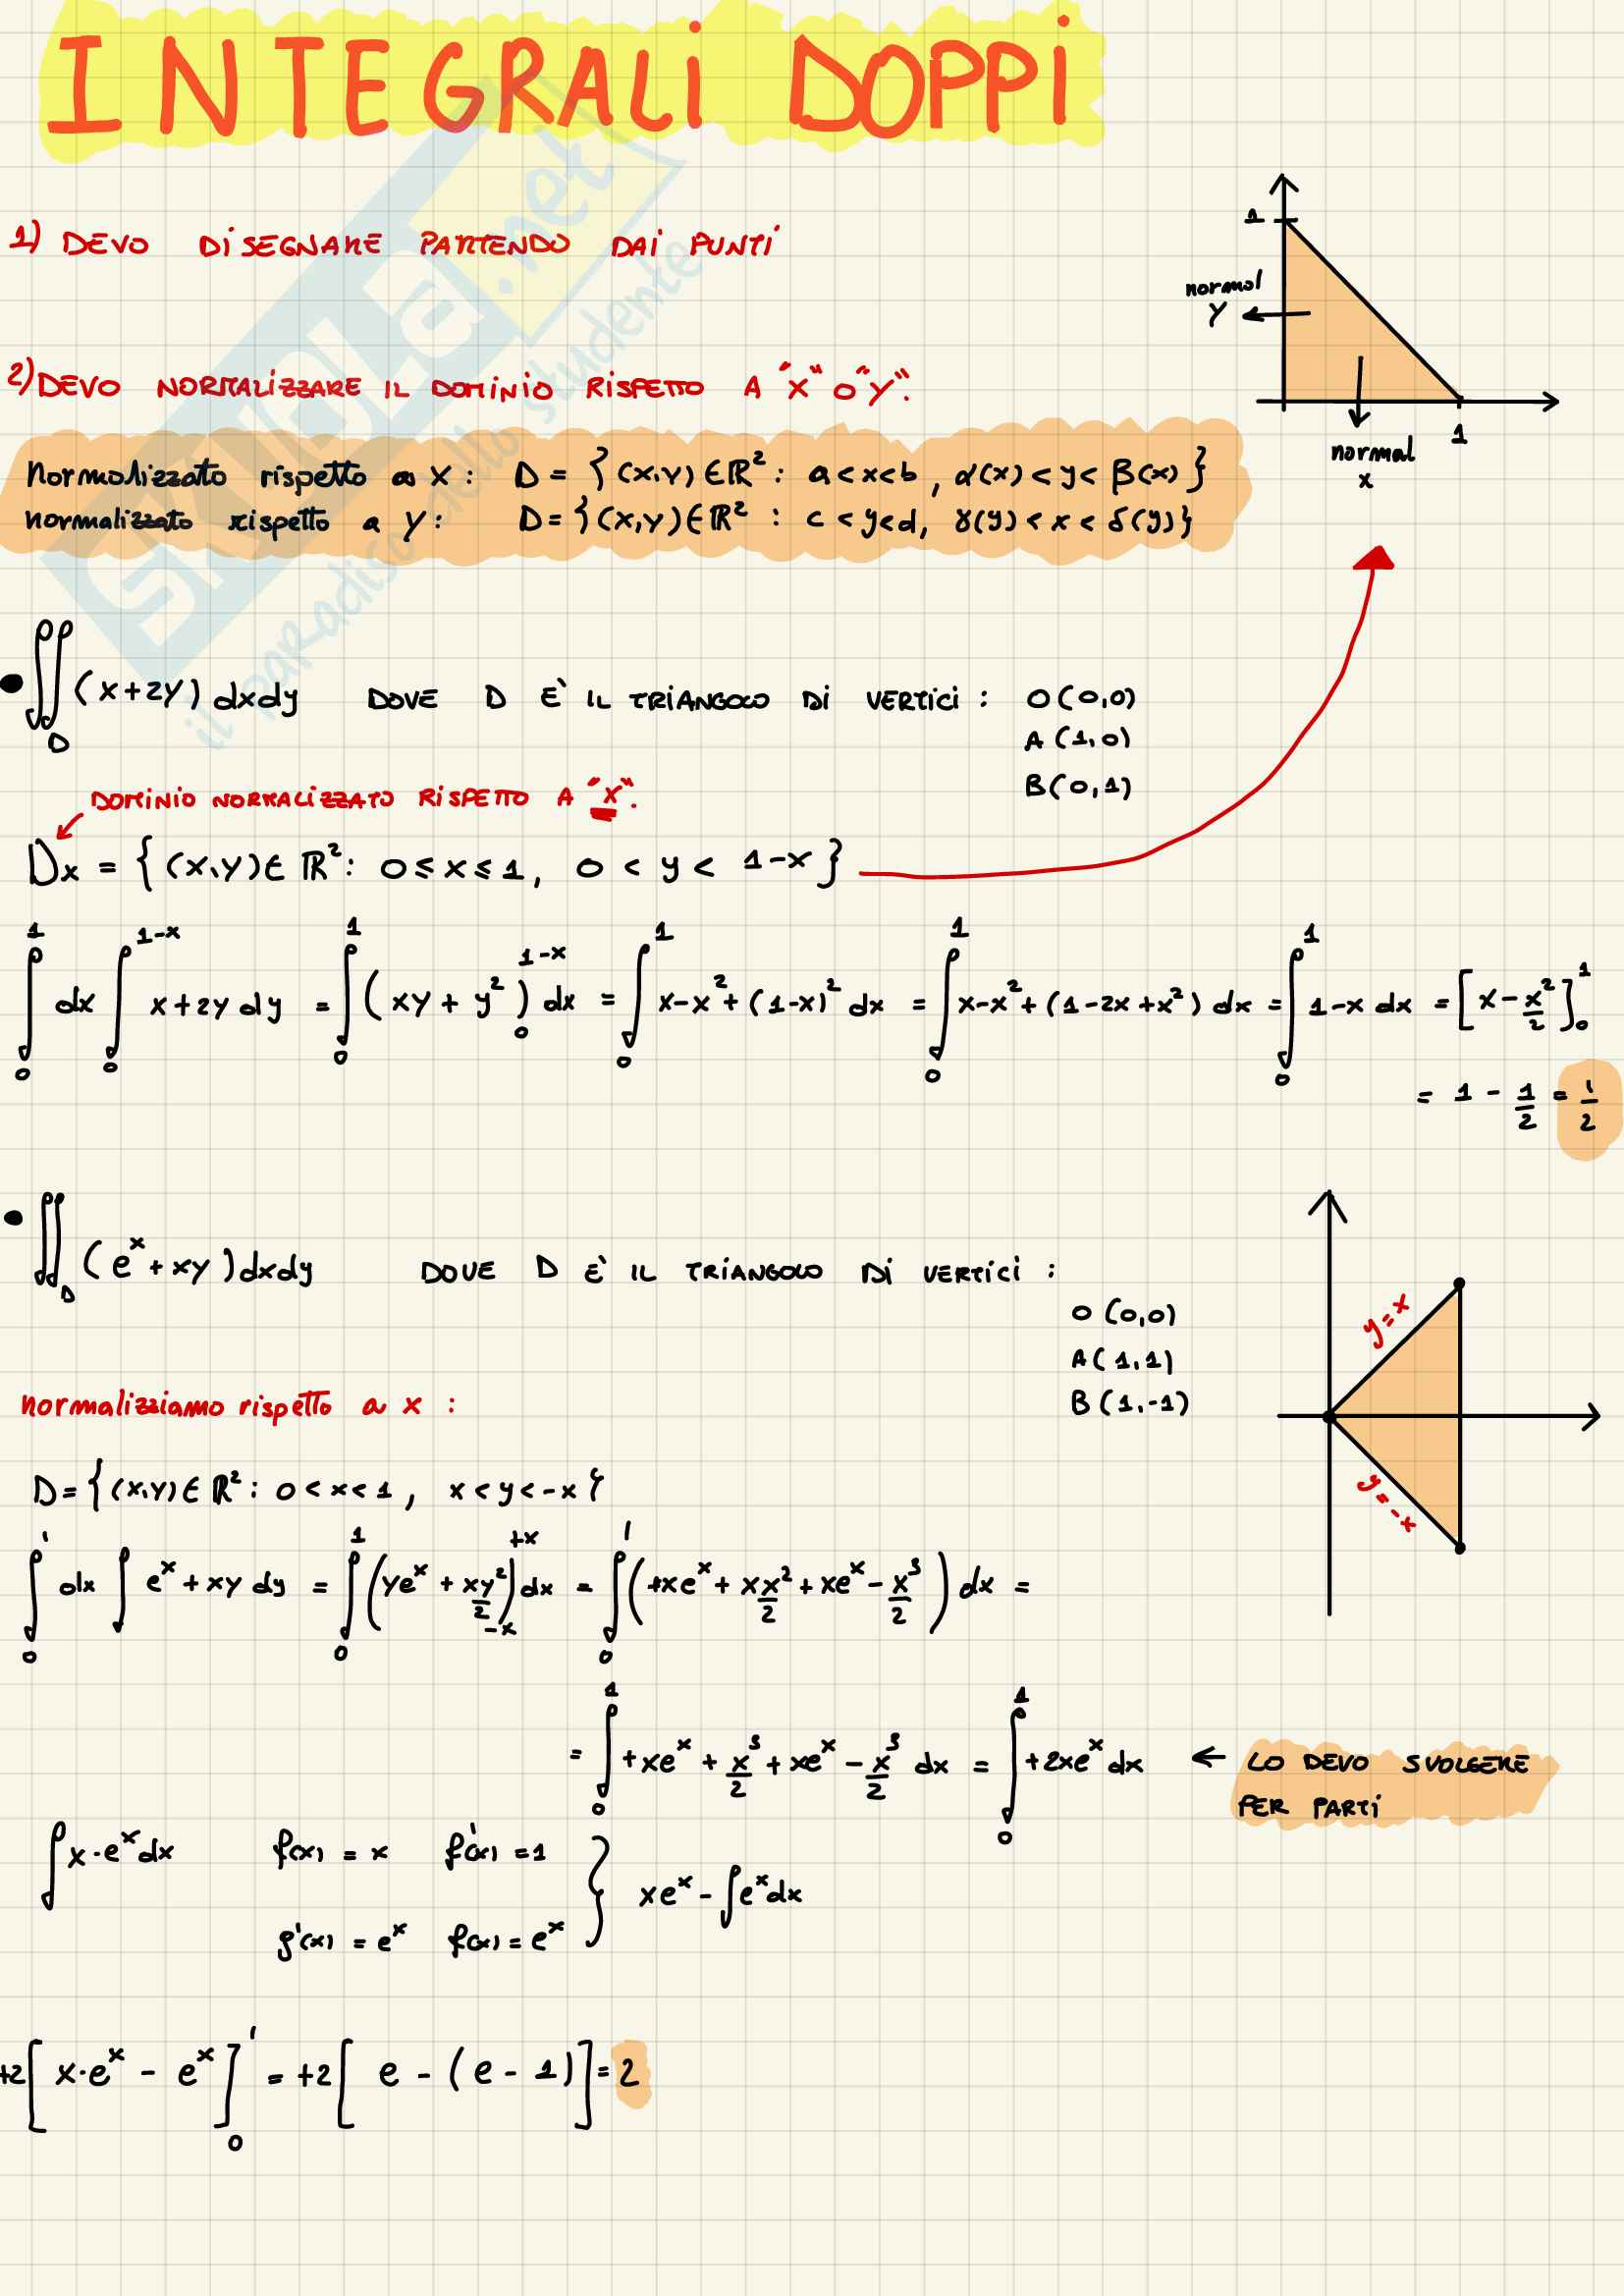 INTEGRALI DOPPI
1) DEVO DISEGNARE PARTENDO DAI PUNTI
1
normal
Y
1
normal
x
2) DEVO NORMALIZZARE IL DOMINIO RISPETTO A "X" O "Y".
Normalizzato rispetto a X: D = {(x,y) ∈ ℝ²: a<x<b, α(x) < y < β(x)}
normalizzato rispetto a Y: D = {(x,y) ∈ ℝ²: c<y<d, γ(y) < x < δ(y)}
• ∬_D (x+2y) dxdy DOVE D E' IL TRIANGOLO DI VERTICI: O(0,0)
A(1,0)
B(0,1)
DOMINIO NORMALIZZATO RISPETTO A "X".
Dx = {(x,y) ∈ ℝ²: 0 ≤ x ≤ 1, 0 < y < 1-x}
∫₀¹ dx ∫₀^(1-x) x+2y dy = ∫₀¹ (xy + y²)₀^(1-x) dx = ∫₀¹ x-x²+(1-x)² dx = ∫₀¹ x-x²+(1-2x+x²) dx = ∫₀¹ 1-x dx = [x - x²/2]₀¹
= 1 - 1/2 = 1/2
• ∬_D (e^x + xy) dxdy DOVE D E' IL TRIANGOLO DI VERTICI:
O(0,0)
A(1,1)
B(1,-1)
y=x
y=-x
normalizziamo rispetto a x:
D = {(x,y) ∈ ℝ²: 0<x<1, x<y<-x}
∫₀¹ dx ∫ e^x + xy dy = ∫₀¹ (ye^x + xy²/2)₋ₓ^(+x) dx = ∫₀¹ (+xe^x + x x²/2 + xe^x - x³/2) dx =
= ∫₀¹ +xe^x + x³/2 + xe^x - x³/2 dx = ∫₀¹ +2xe^x dx ← LO DEVO SVOLGERE
PER PARTI
∫ x·e^x dx f(x) = x f'(x) = 1
xe^x - ∫e^x dx
g'(x) = e^x f(x) = e^x
+2[x·e^x - e^x]₀¹ = +2[e - (e - 1)] = 2
SKUOLA.net
il paradiso dello studente